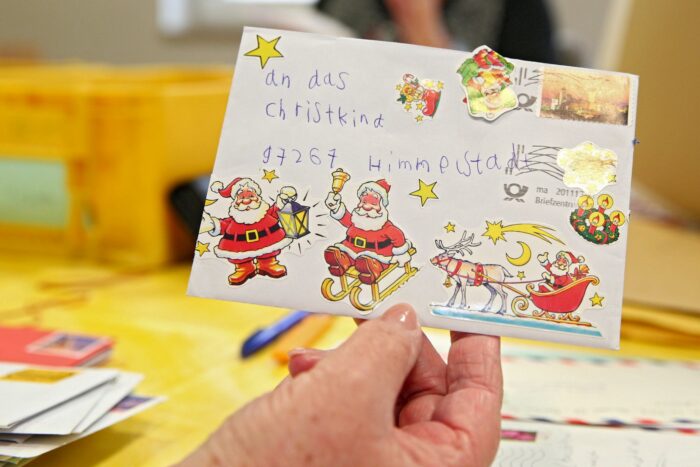 an das
christkind
97267 Himmelstadt
ma 20111
Briefzentru